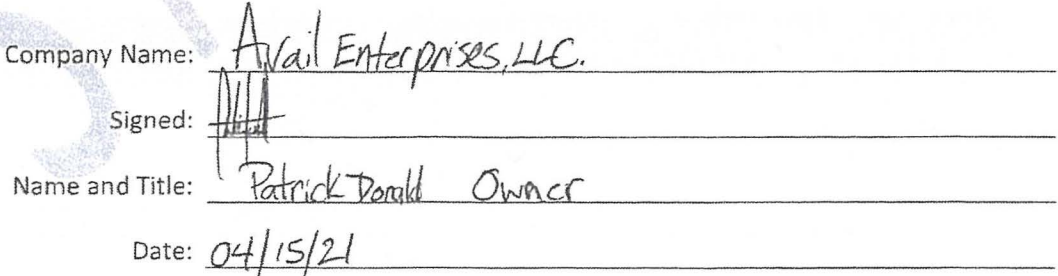 Company Name: Avail Enterprises, LLC.
Signed:
Name and Title: Patrick Donald Owner
Date: 04/15/21